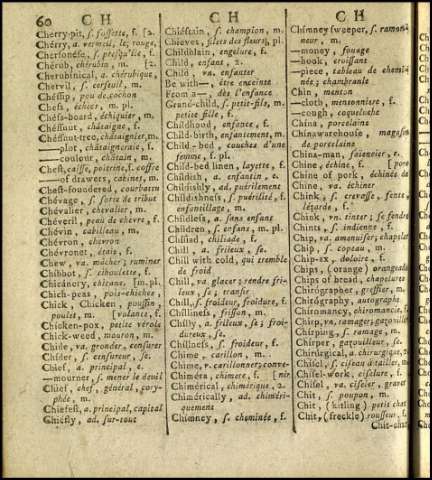 60 C H
Cherry-pit, s. fossette, f. [2.
Chérry, a. vermeil, le, rouge,
Chersonése, s. presqu'ile, f.
Chérub, chérubin, [2.
Cherubínical, a. chérubique,
Chervil, s. cerfeuil, m.
Chéslip, pou de cochon
Chess, échec, m. pl.
Chéss-board, échiquier, m.
Chéstnut, chataigne, f.
Chéstnut-tree, châtaignier, m.
—plot, châtaigneraie, f.
—couleur, châtain, m.
Chest, caisse, poitrine, f. coffre
—of drawers, cabinet, m.
Chest-foundered, courbattu
Chévage, s. sorte de tribut
Chevalier, chevalier, m.
Chéveril, peau de chèvre, f.
Chévin, cabilleau, m.
Chévron, chevron
Chévronel, étaie, f.
Chew, va. mâcher; ruminer
Chibbol, s. ciboulette, f.
Chicánery, chicane, [m. pl.
Chich-peas, pois-chiches,
Chick, Chicken, poussin,
poulet, m. [volante, f.
Chicken-pox, petite vérole
Chick-weed, mouron, m.
Chide, va. gronder, censurer
Chider, s. censureur, se.
Chief, a. principal, e.
—mourner, mener le deuil
Chief, chef, général, coryphée,
m.
Chiefest, a. principal, capital
Chiefly, ad. sur-tout
C H
Chiéftain, s. champion, m.
Chieves, filets des fleurs, pl.
Childblain, engelure, f.
Child, enfant, 2.
Child, va. enfanter
Be with—, être enceinte
From a—, dès l'enfance
Grand-child, s. petit-fils, m.
petite fille, f.
Childhood, enfance, f.
Child-birth, enfantement, m.
Child-bed, couches d'une
femme, f. pl.
Child-bed linen, layette, f.
Childish, a. enfantin, e.
Childishly, ad. puérilement
Childishness, s. puérilité, f.
enfantillage, m.
Childless, a. sans enfans
Children, s. enfans, m. pl.
Chiliad, chiliade, f.
Chill, a. frileux, se.
Chill with cold, qui tremble
de froid
Chill, va. glacer; rendre frileux
se; transir
Chill, s. froideur, froidure, f.
Chilliness, frisson, m.
Chilly, a. frileux, se; froidureux,
se.
Chillness, s. froideur, f.
Chime, carillon, m.
Chime, v. carillonner; conve-
Chiméra, chimere, f. [nir
Chimérical, chimérique, 2.
Chimérically, ad. chimériquement
Chimney, s. cheminée, f.
C H
Chimney sweeper, s. ramoneur,
m.
—money, fouage
—hook, croissant
—piece, tableau de cheminée;
chambranle
Chin, menton
—cloth, mentonniere, f.
—cough, coqueluche
China, porcelaine
Chinawarehouse, magasin
de porcelaine
China-man, faïencier, e.
Chine, échine, f. [porc
Chine of pork, échinée de
Chine, va. échiner
Chink, s. crevasse, fente,
lézarde, f.
Chink, vn. tinter; se fendre
Chints, s. indienne, f.
Chip, va. amenuiser; chapeler
Chip, s. copeau, m.
Chip-ax, doloire, f.
Chips, (orange) orangeade
Chips of bread, chapelure
Chirógrapher, greffier, m.
Chirógraphy, autographe
Chiromancy, chiromancie, f.
Chirp, vn. ramager, gazouiller
Chirping, s. ramage, m.
Chirper, gazouilleur, se.
Chirúrgical, a. chirurgique, 2.
Chisel, s. ciseau de tailleur, m.
Chisel-work, ciselure, f.
Chisel, va. ciseler, graver
Chit, s. poupon, m.
Chit, (kitling) petit chat
Chit, (freckle) rousseur, f.
Chit-chat